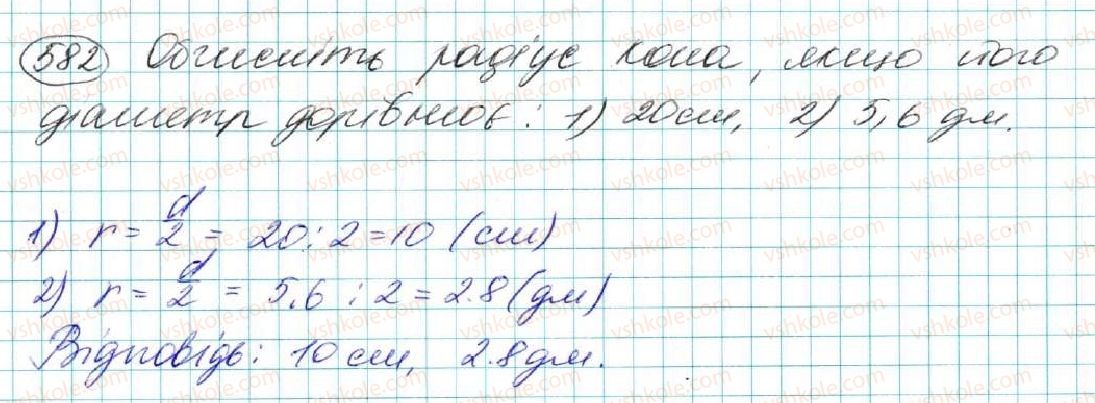 582 Обчисліть радіус кола, якщо його
діаметр дорівнює: 1) 20см, 2) 5,6 дм.
1) r = d/2 = 20 : 2 = 10 (см)
2) r = d/2 = 5,6 : 2 = 2.8 (дм)
Відповідь: 10 см, 2.8 дм.